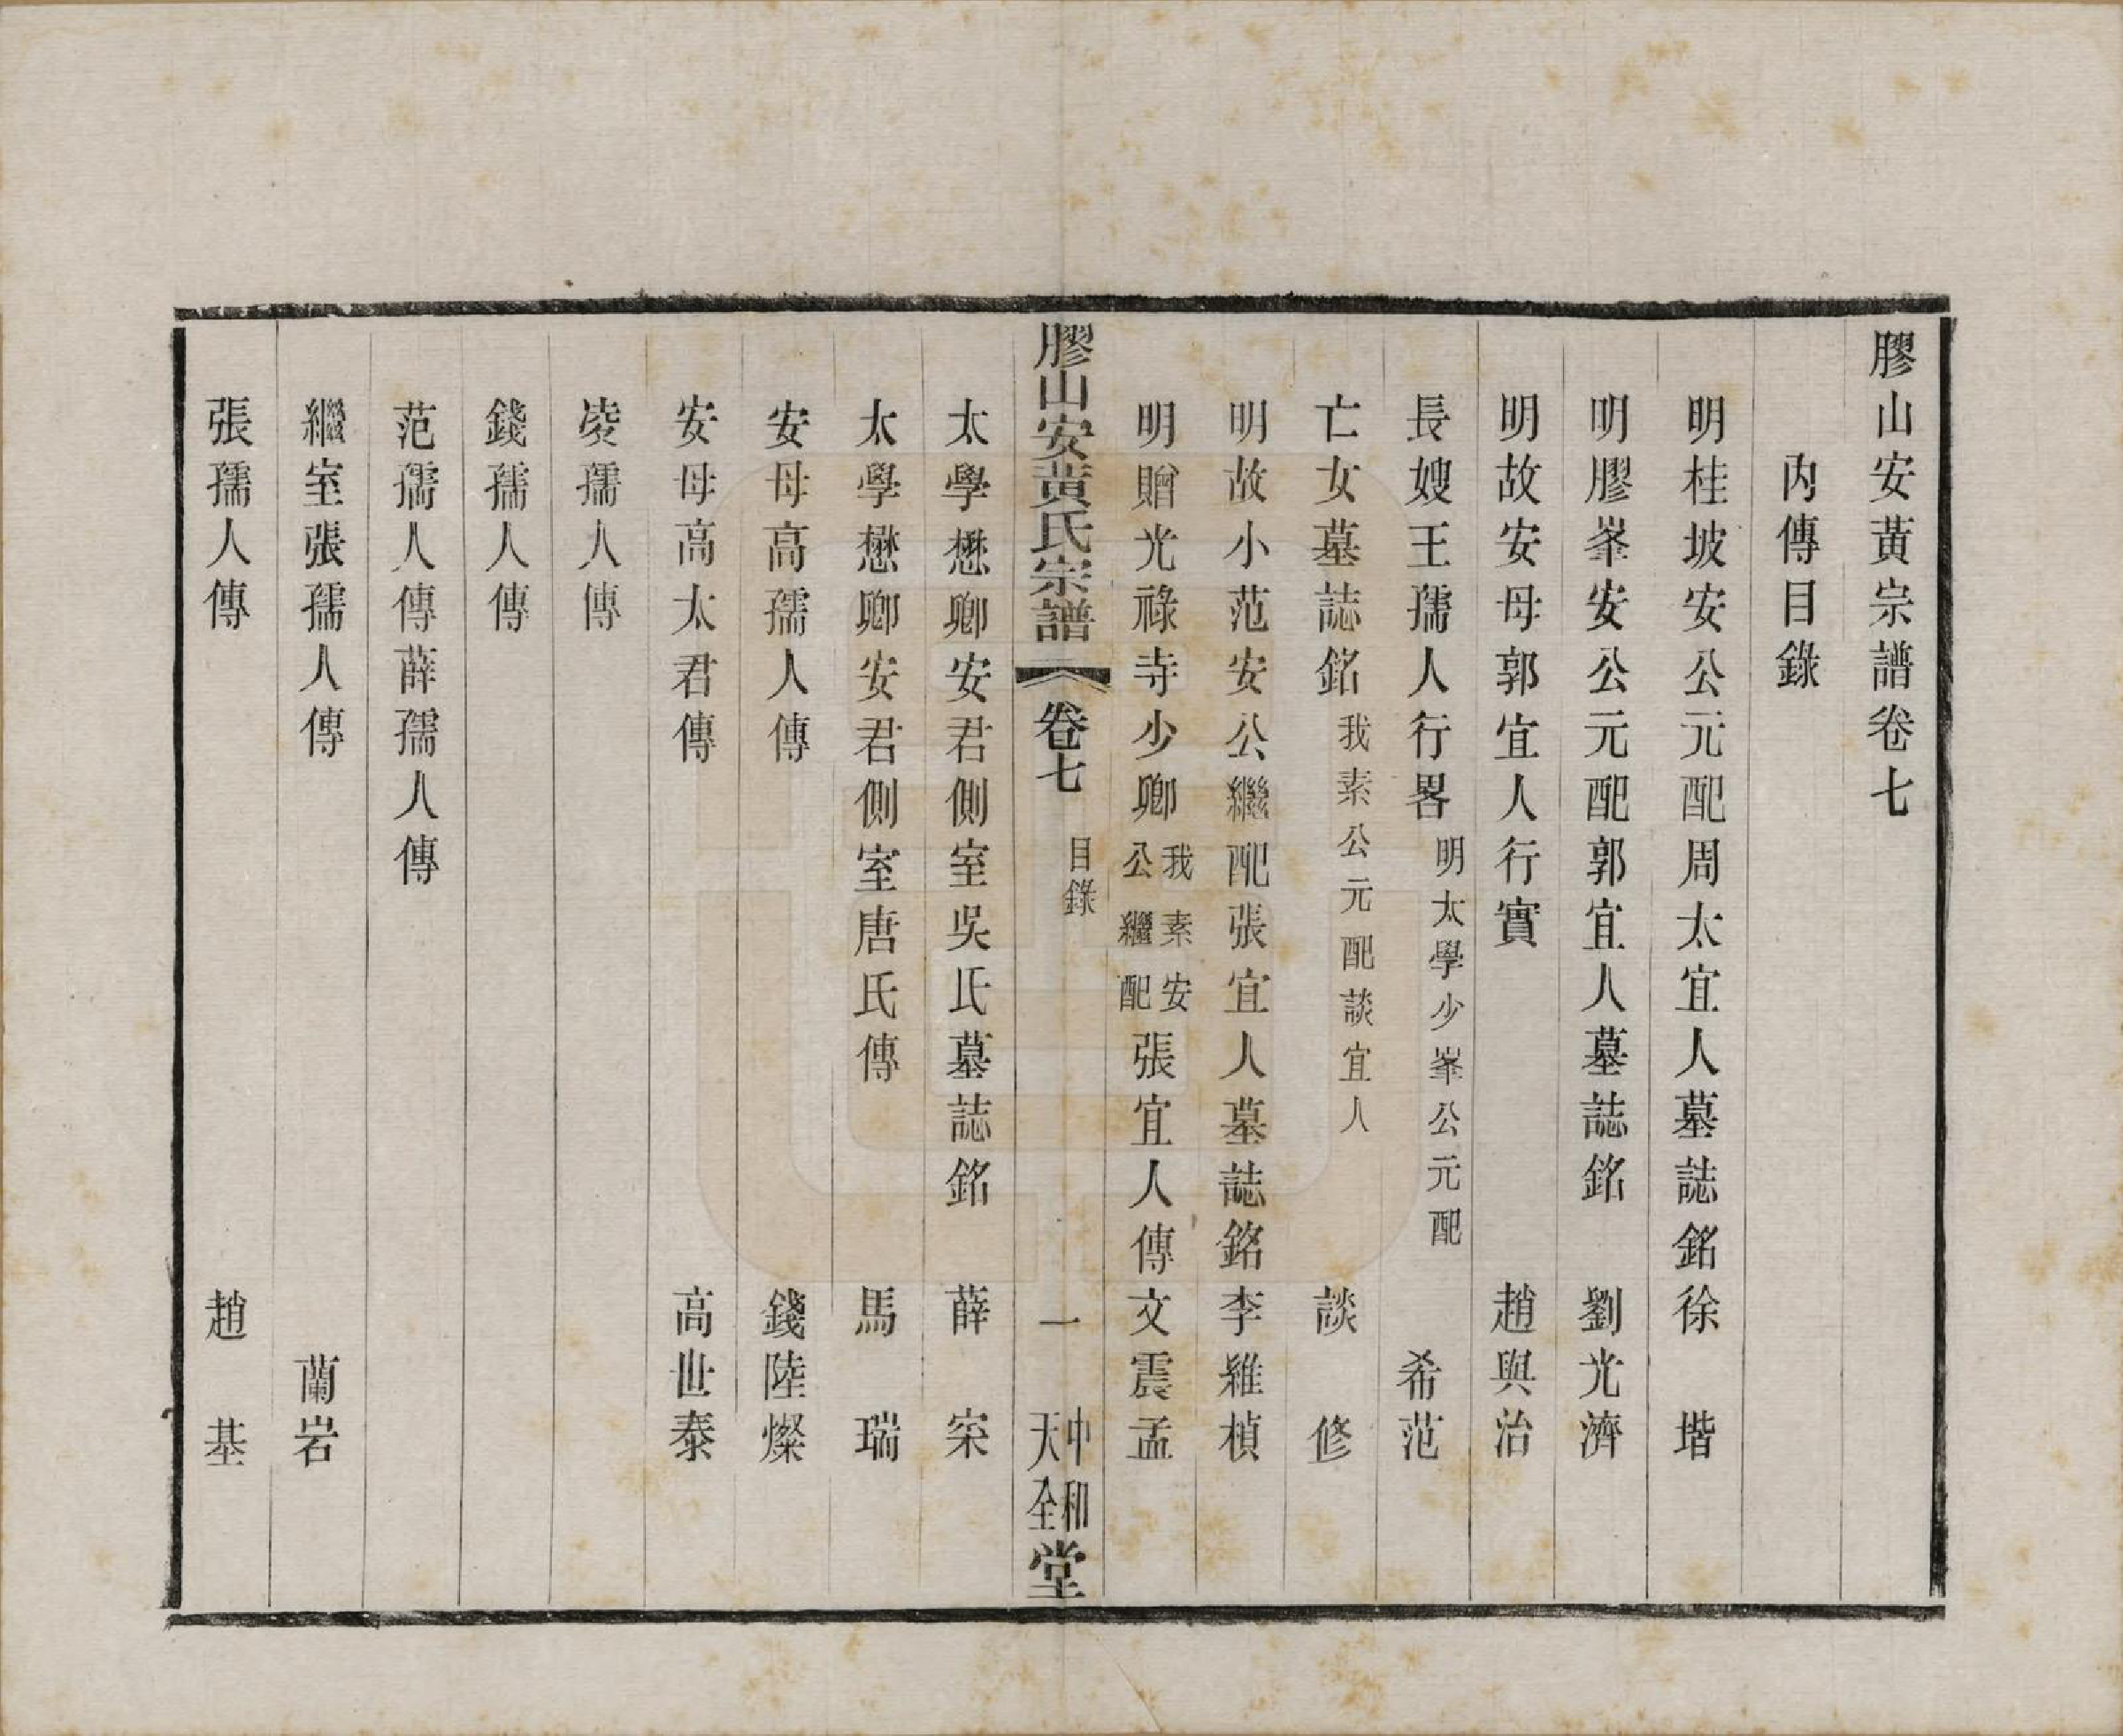 膠山安黃宗譜卷七
內傳目錄
明桂坡安公元配周太宜人墓誌銘徐　堦
明膠峯安公元配郭宜人墓誌銘　劉光濟
明故安母郭宜人行實　趙與治
長嫂王孺人行畧明太學少峯公元配　希范
亡女墓誌銘我素公元配談宜人　談　修
明故小范安公繼配張宜人墓誌銘李維楨
明贈光祿寺少卿我素安公繼配張宜人傳文震孟
膠山安黃氏宗譜　卷七　目錄　一　中和天全堂
太學懋卿安君側室吳氏墓誌銘　薛　寀
太學懋卿安君側室唐氏傳　馬　瑞
安母高孺人傳　錢陸燦
安母高太君傳　高世泰
淩孺人傳
錢孺人傳
范孺人傳薛孺人傳
繼室張孺人傳　蘭岩
張孺人傳　趙　基